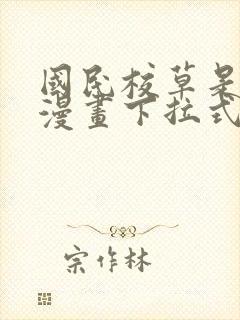 國民校草是
漫畫下拉式
宗作林